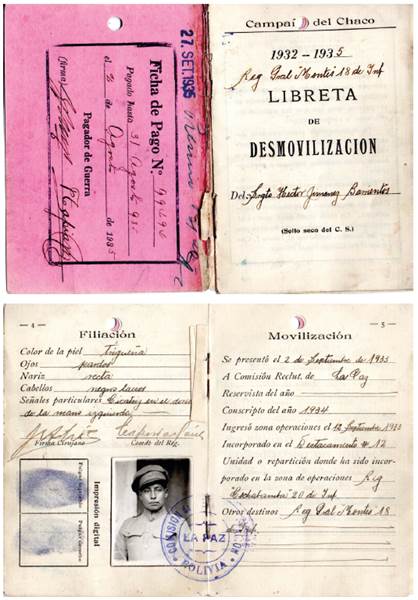 27. SET. 1935
Ficha de Pago Nº 99696
Pagado hasta 31 Agosto 935
el 31 de Agosto de 1935
(firma)
Pagador de Guerra
Campaña del Chaco
1932 - 1935
Reg Gral Montes 18 de Inf
LIBRETA
DE
DESMOVILIZACION
Del Sigto Hector Jimenez Bamentos
(Sello seco del C. S.)
— 4 —
Filiación
Color de la piel trigueña
Ojos pardos
Nariz recta
Cabellos negros lacios
Señales particulares Cicatriz en el dorso
de la mano izquierda
Firma Cirujano
Comdt del Reg.
Impresión digital
Pulgar Derecho
Pulgar Izquierdo
Movilización
— 5
Se presentó el 2 de Septiembre de 1933
A Comisión Reclut. de La Paz
Reservista del año
Conscripto del año 1934
Ingresó zona operaciones el 12 Septiembre 1933
Incorporado en el Destacamento # 12
Unidad o repartición donde ha sido incor-
porado en la zona de operaciones Reg
Cochabamba 20 de Inf.
Otros destinos Reg Gral Montes 18
de Inf
COMISION
LA PAZ
BOLIVIA